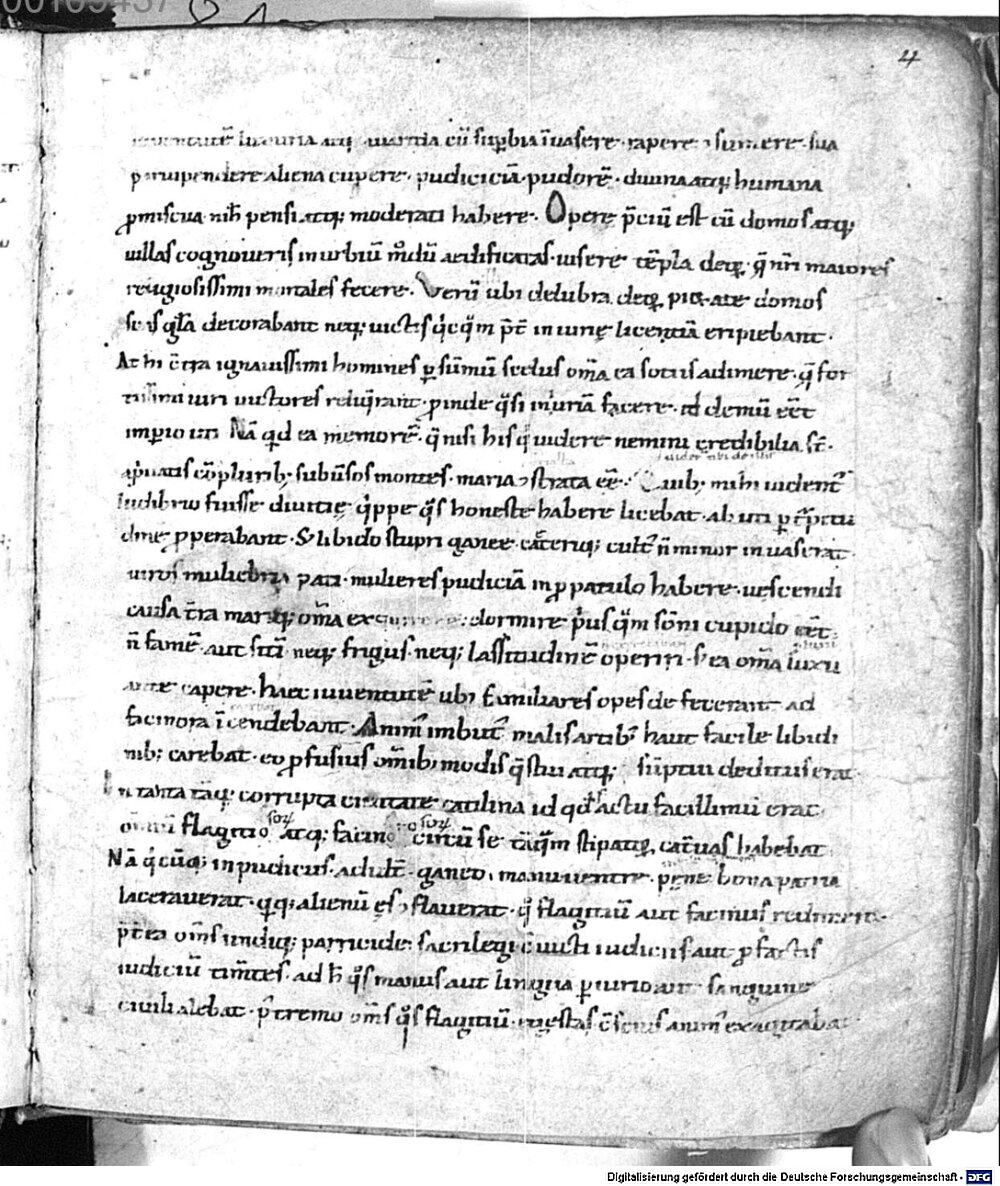 00109437
4
iuuentutē luxuria atq; auaritia cū suꝑbia īuasere· rapere ɔsumere· sua
paruipendere aliena cupere· pudiciciā pudorē· diuina atq; humana
ꝓmiscua· nih̄ pensi atq; moderati habere· Opere p̄ciū est cū domos atq;
uillas cognoueris in urbiū modū aedificatas· uisere tēpla deoꝝ q̄ nr̄i maiores
religiosissimi mortales fecere· Verū ubi delubra deoꝝ pietate domos
suas gl̄a decorabant neq; uictis qͥcqͣm p̄t iniurię licentiā eripiebant·
At hi c̄tra ignauissimi homines ꝑ sūmū scelus om̄a ea sociis adimere· q̄ for
tissimi uiri uictores reliq̄rant· ꝓinde qͣsi iniuriā facere· id demū eēt
imperio uti Nā qͥd ea memorē· q̄ nisi his qͥ uidere nemini credibilia st̄·
a pͥuatis cōplurib; subūsos montes· maria ɔstrata eē· Quib; mihi uident᷑
ludibrio fuisse diuitię· qͥppe qͣs honeste habere licebat· ab uti ꝑ t̄pitu
dinē ꝓperabant· S; libido stupri ganee· ceteriq; cult᷑ n̄ minor inuaserat·
uiros muliebria pati· mulieres pudiciā in ꝓpatulo habere· uescendi
causa t̄ra mariq; om̄a exquirere· dormire pͥus qͣm sōni cupido eēt·
n̄ famē· aut sitī· neq; frigus· neq; lassitudinē operiri· s; ea om̄a luxu
ante capere· haec iuuentutē ubi familiares opes defecerant ad
facinora īcendebant· Anim᷑ imbut᷑ malis artib᷑ haut facile libidi
nib; carebat· eo ꝓfusius om̄ib; modis qͣstui atq; sūptui deditus erat·
In tanta tāq; corrupta ciuitate catilina id qd̄ factu facillimū erat
omniū flagitioꝝ atq; facinoroꝝ circū se tāqͣm stipatoꝝ cat̄uas habebat
Nā qͥcūq; inpudicus· adult᷑· ganeo· manu uentre· pene· bona patria
lacerauerat· qͥq; alienū ęs ɔflauerat· qͦ flagitiū aut facinus redimeret·
p̄t̄ea om̄s undiq; parricide· sacrilegi c̄uicti iudiciis aut ꝓ factis
iudiciū tim̄tes· ad h̄ qͦs manus aut lingua ꝑiurio aut sanguine
ciuili alebat· p̄tremo om̄s qͦs flagitiū· egestas c̄scius anim᷑ exagitabat·
Digitalisierung gefördert durch die Deutsche Forschungsgemeinschaft - DFG